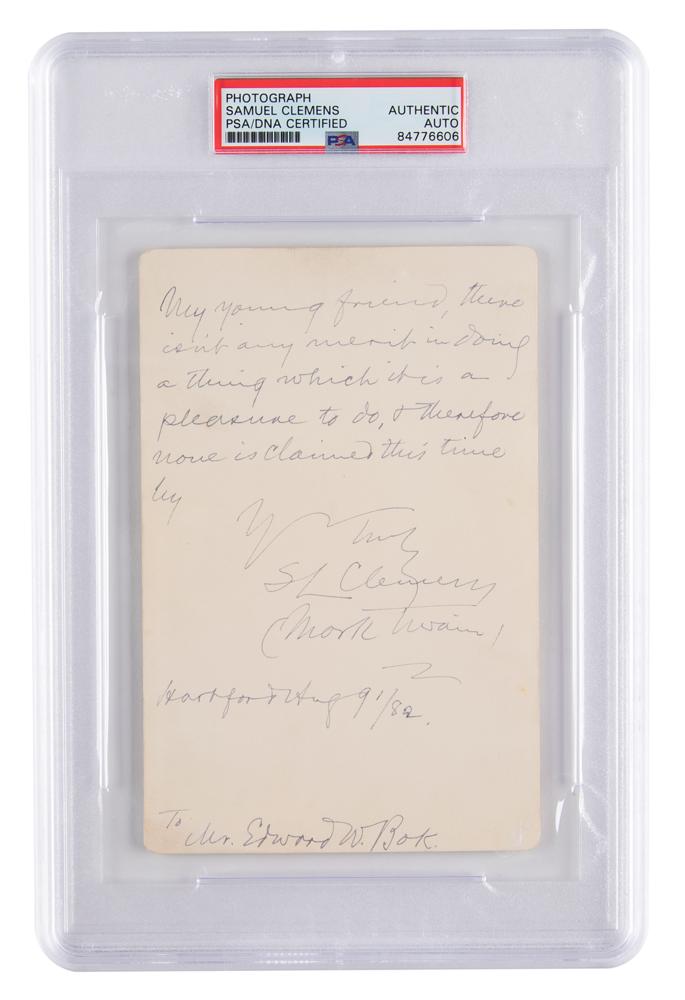 PHOTOGRAPH
SAMUEL CLEMENS
PSA/DNA CERTIFIED
AUTHENTIC
AUTO
84776606
PSA
My young friend, there
isn't any merit in doing
a thing which it is a
pleasure to do, & therefore
none is claimed this time
by
Yrs Truly
SL Clemens
(Mark Twain)
Hartford Aug 9/82.
To Mr. Edward W. Bok.